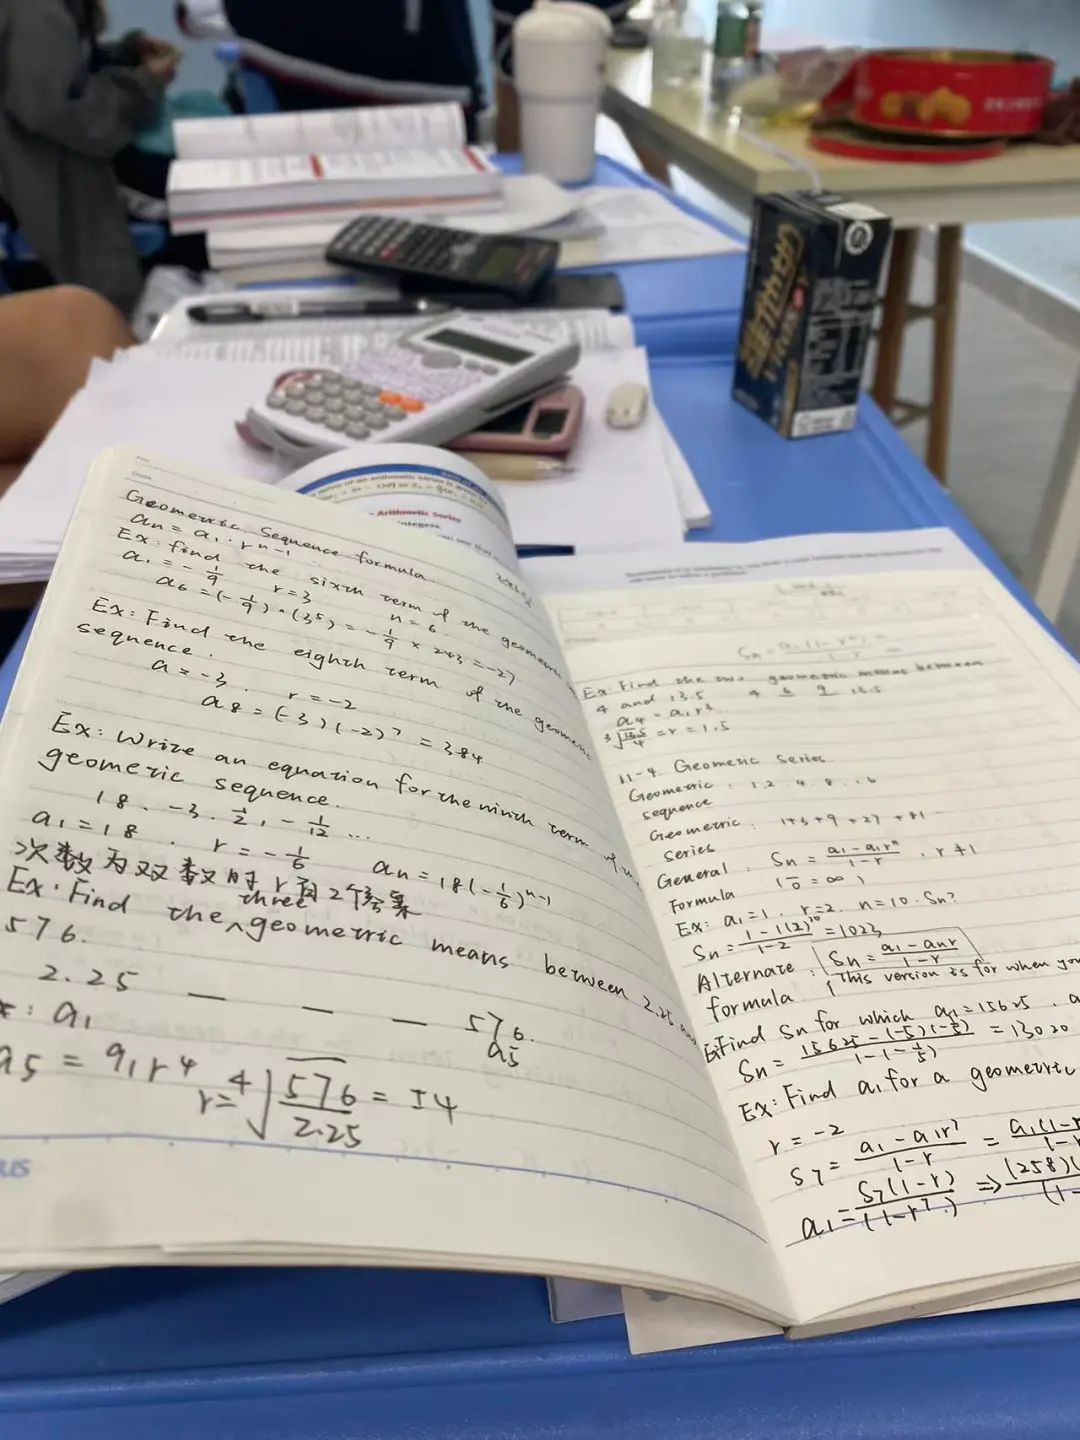 Arithmetic Series
Geometric Sequence formula
an = a1 · r^n-1
Ex: find the sixth term of the geometric
a1 = -1/9 r=3 n=6.
a6 = (-1/9) · (3^5) = -1/9 × 243 = -27
Ex: Find the eighth term of the geometric
sequence.
a = -3. r = -2
a8 = (-3)(-2)^7 = 384
Ex: Write an equation for the ninth term of
geometric sequence.
18. -3. 1/2, -1/12 ...
a1 = 18. r = -1/6 an = 18(-1/6)^n-1
次数为双数时 r有2个答案
Ex: Find the three geometric means between 2.25 and
576.
2.25 — — — 576.
a1 a5
a5 = a1r^4
r = ⁴√576/2.25 = ±4
Sn = a1(1-r^n) / 1-r
Ex: Find the two geometric means between
4 and 13.5 4 6 9 13.5
a4 = a1r^3
³√13.5/4 = r = 1.5
11-4. Geometric Series
Geometric : 1. 2. 4. 8. 16
sequence
Geometric : 1+3+9+27+81
series
General : Sn = a1-a1r^n / 1-r . r≠1
Formula (1/0 = ∞)
Ex: a1=1. r=2. n=10. Sn?
Sn = 1-1(2)^10 / 1-2 = 1023
Alternate : Sn = a1-anr / 1-r
formula (This version is for when you
Ex: Find Sn for which a1=15625. a
Sn = 15625-(-5)(-1/5) / 1-(-1/5) = 13020
Ex: Find a1 for a geometric
r = -2
S7 = a1-a1r^7 / 1-r = a1(1-r / 1-r
a1 = S7(1-r) / (1-r^7) ⇒ (258)( / (1-